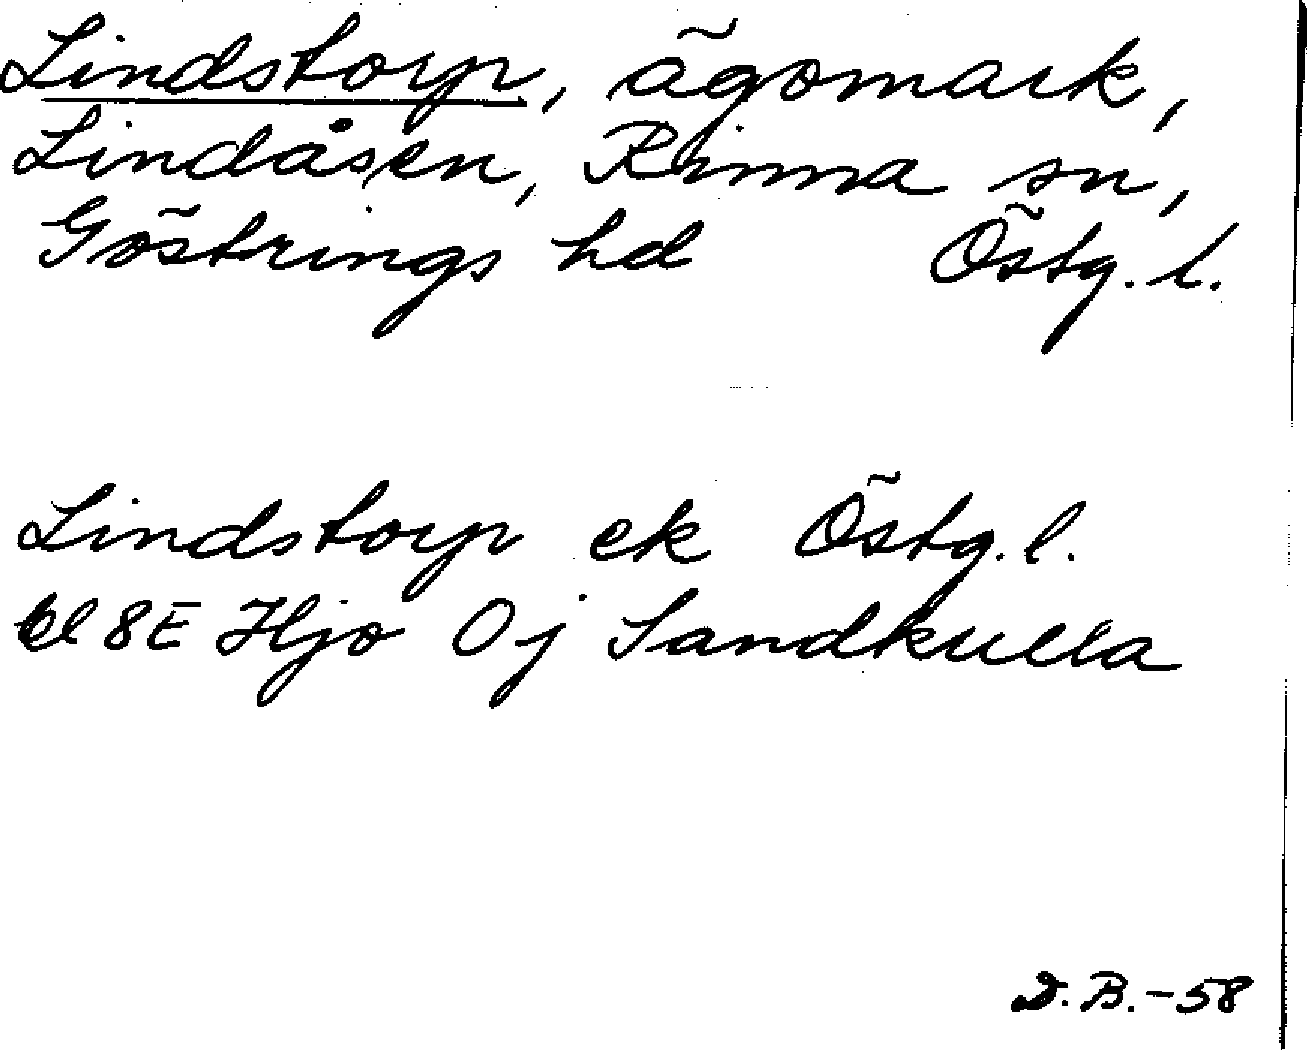 Lindstorp, ägomark,
Lindåsen, Rinna sn,
Göstrings hd Östg. l.
Lindstorp ek Östg. l.
bl 8E Hjo 0j Sandkulla
D. B. -58